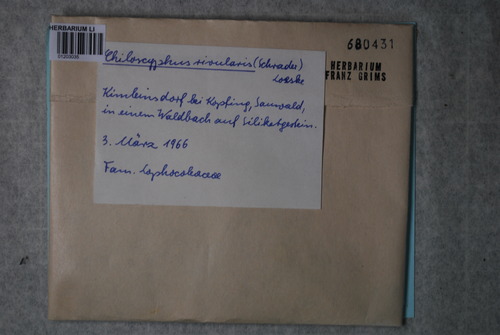 HERBARIUM LI
680431
HERBARIUM
FRANZ GRIMS
Chiloscyphus rivularis (Schrader)
Loeske
bei Kopfing, Sauwald,
in einem Waldbach auf Silikatgestein.
3. März 1966
Fam. Lophocoleaceae